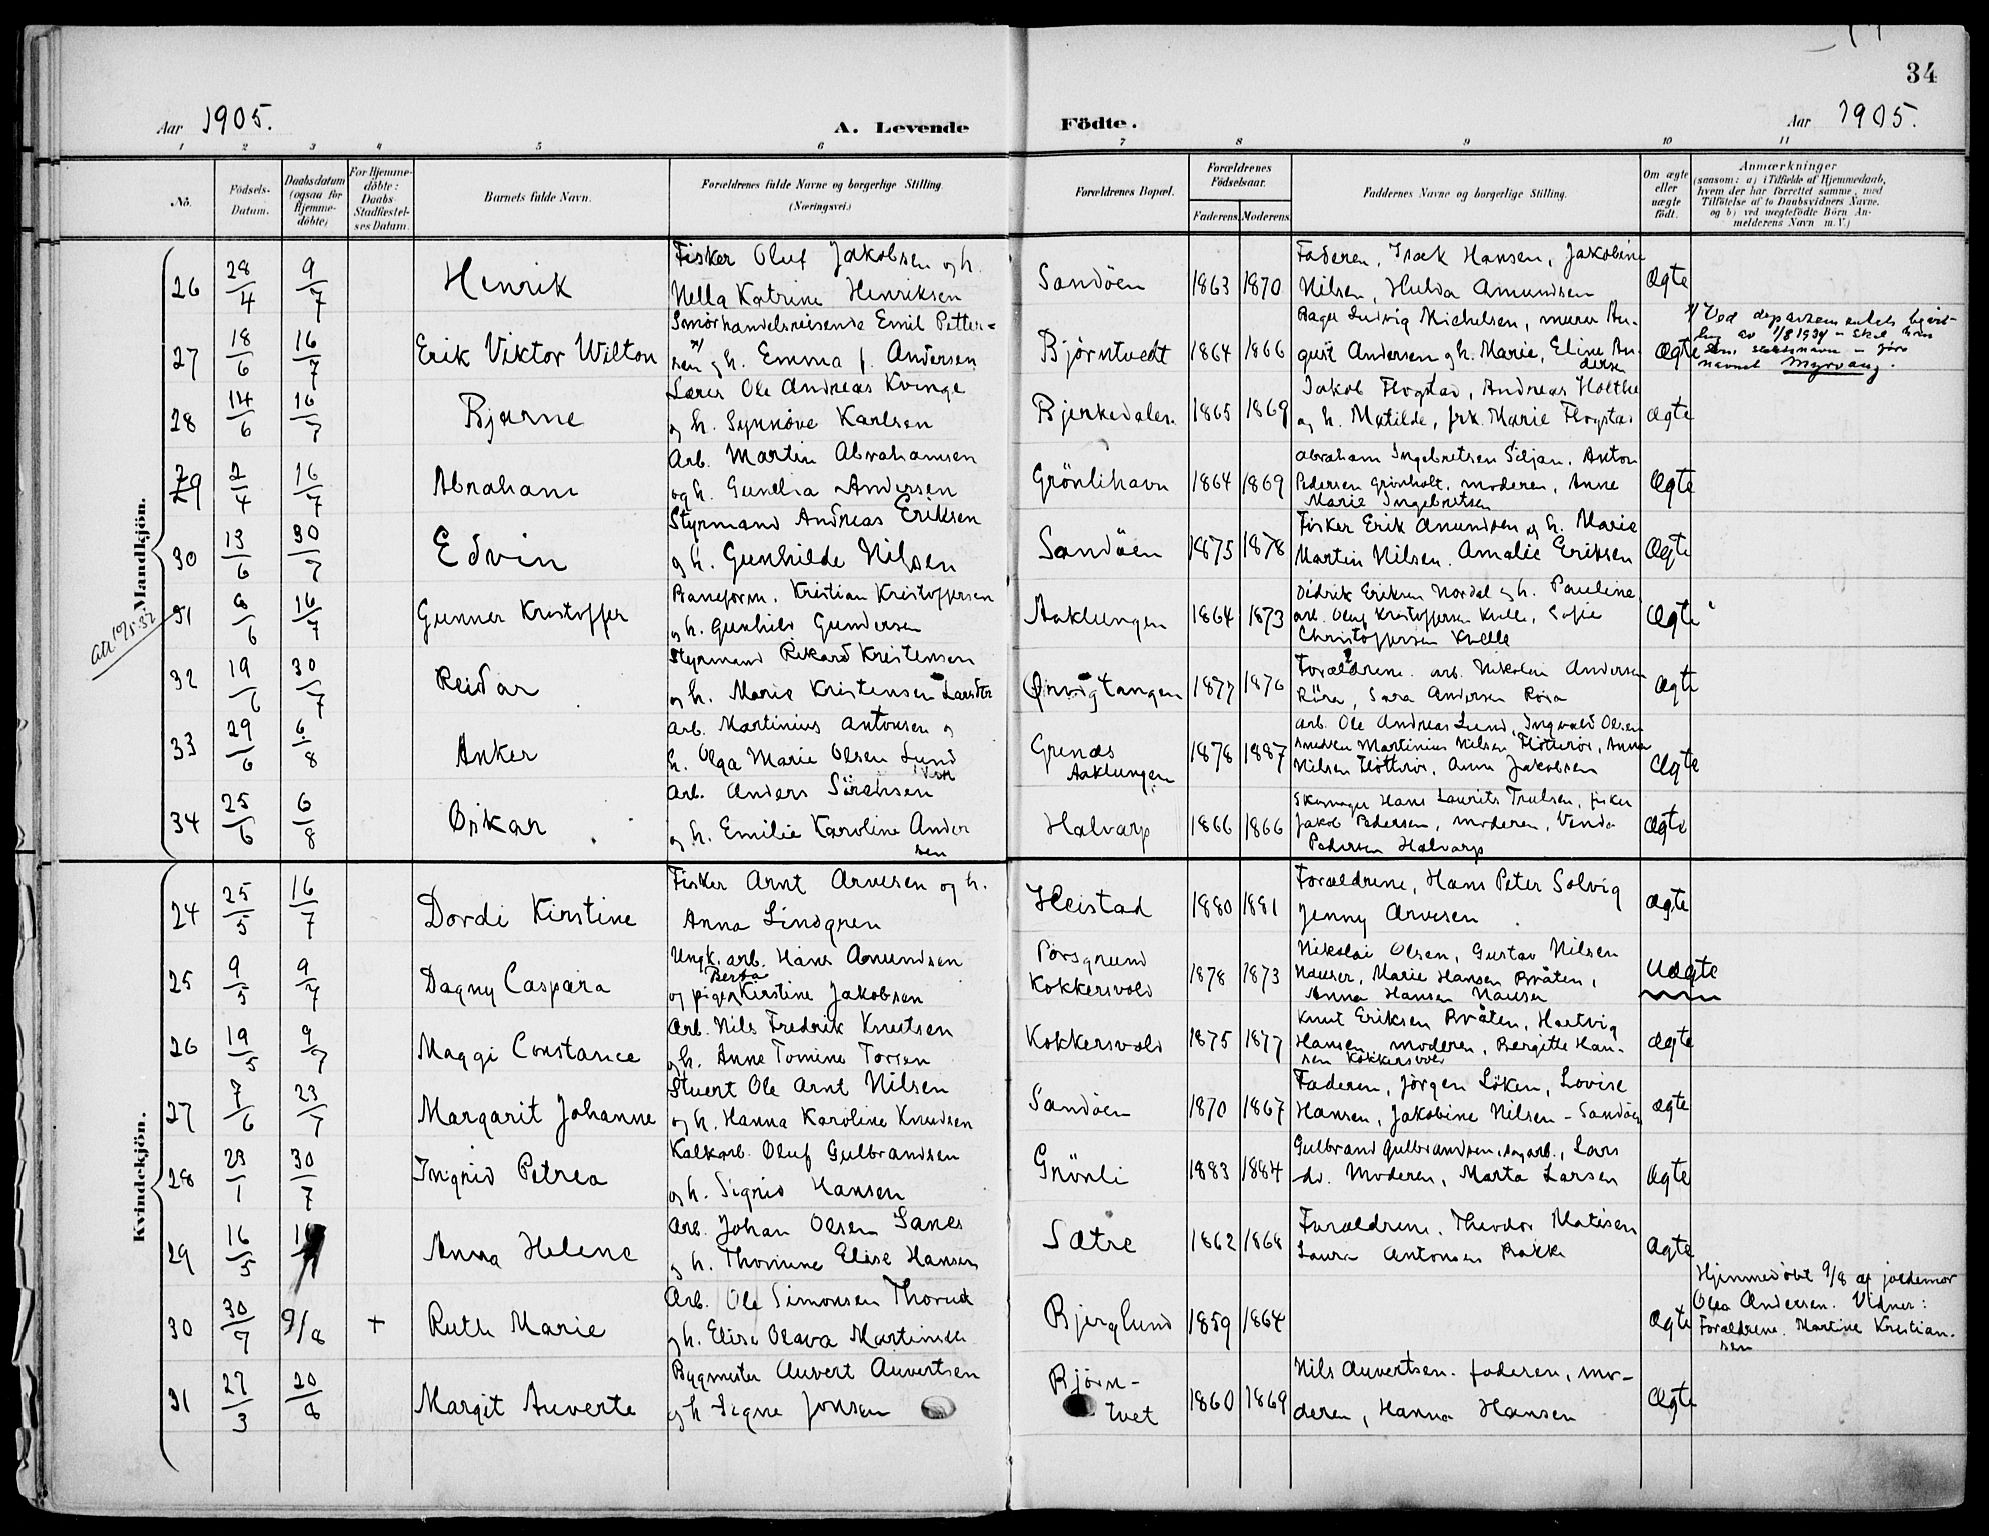 34
Aar 1905.
A. Levende Födte.
Aar 1905.
1 2 3 4 5 6 7 8 9 10 11
No.
Födsels-
Datum.
Daabsdatum
(ogsaa for
Hjemme-
döbte)
For Hjemme-
döbte:
Daabs-
Stadfæstel-
ses Datum.
Barnets fulde Navn.
Forældrenes fulde Navne og borgerlige Stilling.
(Næringsvei.)
Forældrenes Bopæl.
Forældrenes
Födselsaar.
Faderens. Moderens.
Faddernes Navne og borgerlige Stilling.
Om ægte
eller
uægte
født.
Anmærkninger
(saasom: a) i Tilfælde af Hjemmedaab,
hvem der har forrettet samme, med
Tilföielse af to Daabsvidners Navne,
og b) ved uægtefödte Börn An-
melderens Navn m. V.)
Mandkjön.
26 28/4 9/7 Henrik
Fisker Oluf Jakobsen og h.
Nella Katrine Henriksen
Sandöen 1863 1870
Faderen, Isak Hansen, Jakobine
Nilsen, Hulda Amundsen
Ægte
27 18/6 16/7 Erik Viktor Wilton
Smörhandelsreisende Emil Petter=
sen x) og h. Emma f. Andersen
Bjørntvedt 1864 1866
Bager Ludvig Michelsen, murer Au-
gust Andersen og h. Marie, Eline An-
dersen
Ægte
x) Ved departementets
av 1/8 1934 - skal
slektsnavn -
navnet Myrvang.
28 14/6 16/7 Bjarne
Lærer Ole Andreas Kvinge
og h. Synnöve Karlsen
Bjerkedalen 1865 1869
Jakob Flogstad, Andreas Holthe
og h. Matilde, frk. Marie Flogstad
Ægte
29 2/4 16/7 Abraham
Arb. Martin Abrahamsen
og h. Gunelia Andersen
Grönlihavn 1864 1869
Abraham Ingebretsen Siljan, Anton
Pedersen Grönholt, moderen, Anne
Marie Ingebretsen
Ægte
30 13/6 30/7 Edvin
Styrmand Andreas Eriksen
og h. Gunhilde Nilsen
Sandöen 1875 1878
Fisker Erik Amundsen og h. Marie
Martin Nilsen. Amalie Eriksen
Ægte
att 19/5.32
31 8/6 16/7 Gunner Kristoffer
Baneform. Kristian Kristoffersen
og h. Gunhild Gundersen
Aaklungen 1864 1873
Didrik Eriksen Nordal og h. Pauline,
arb. Oluf Kristoffersen Kvelle, Sofie
Christoffersen Kvelle
Ægte
32 19/6 30/7 Reidar
Styrmand Rikard Kristensen
og h. Marie Kristensen
Ørvigtangen 1877 1876
Forældrene. arb. Nikolai Andersen
Röra, Sara Andersen Röra
Ægte
33 29/6 6/8 Anker
Arb. Martinius Antonsen og
h. Olga Marie Olsen Lund
Grenæs
Aaklungen 1878 1887
Arb. Ole Andreas Lund, Ingvald Olsen
Martinius Nilsen Flötterör, Anna
Nilsen Flötterör, Anna Jakobsen
Ægte
34 25/6 6/8 Oskar
Arb. Anders Sörensen
og h. Emilie Karoline Ander
sen
Halvarp 1866 1866
Skomager Hans Laurits Trulsen, fisker
Jakob Pedersen, moderen, Vanda
Pedersen Halvarp
Ægte
Kvindekjön.
24 25/5 16/7 Dordi Kirstine
Fisker Arnt Arvesen og h.
Anna Lindgren
Heistad 1880 1881
Forældrene, Hans Peter Solvig
Jenny Arvesen
Ægte
25 9/5 9/7 Dagny Caspara
Ungk. arb. Hans Amundsen
og pigen Berta Kirstine Jakobsen
Porsgrund
Kokkersvold 1878 1873
Nikolai Olsen, Gustav Nilsen
Nauser, Marie Hansen Bråten,
Anna Hansen Nauser
Uægte
26 19/5 9/7 Maggi Constance
Arb. Nils Fredrik Knutsen
og h. Anne Tomine Torsen
Kokkersvold 1875 1877
Knut Eriksen Bråten, Hartvig
Hansen, moderen, Bergitte Han-
sen Kokkersvold
Ægte
27 7/6 23/7 Margarit Johanne
Stuert Ole Arnt Nilsen
og h. Hanna Karoline Knudsen
Sandöen 1870 1867
Faderen, Jörgen Löken, Lovise
Hansen, Jakobine Nilsen - Sandöen
Ægte
28 23/1 30/7 Ingrid Petrea
Kalkarb. Oluf Gulbrandsen
og h. Signid Hansen
Grönli 1883 1884
Gulbrand Gulbrandsen, sagarb., Lars
do. Moderen, Marta Larsen
Ægte
29 16/5 Anna Helene
Arb. Johan Olsen Sanes
og h. Thomine Elise Hansen
Sætre 1862 1868
Forældrene, Theodor Matisen
Laura Antonsen Bakke
Ægte
30 30/7 9/8 + Ruth Marie
Arb. Ole Simonsen Thorud
og h. Elise Olava Martinsen
Bjerglund 1859 1864
Ægte
Hjemmedöbt 9/8 af jordemor
Olea Andersen. Vidner:
Forældrene. Martine Kristian-
sen
31 27/3 20/8 Margit Auverte
Bygmester Auvert Auvertsen
og h Signe Jonsen
Björn-
tvet 1860 1869
Nils Auvertsen. faderen, mo-
deren, Hanna Hansen
Ægte